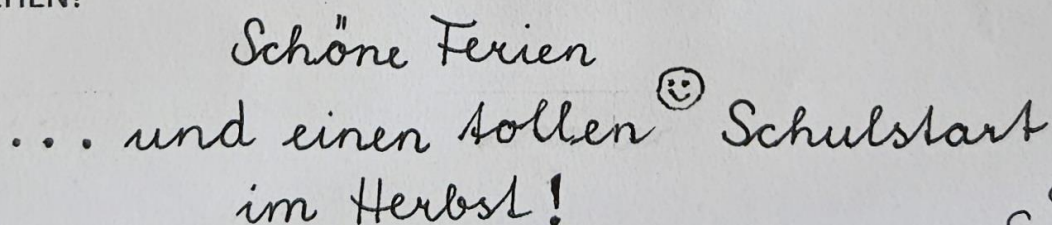 Schöne Ferien
... und einen tollen Schulstart
im Herbst!